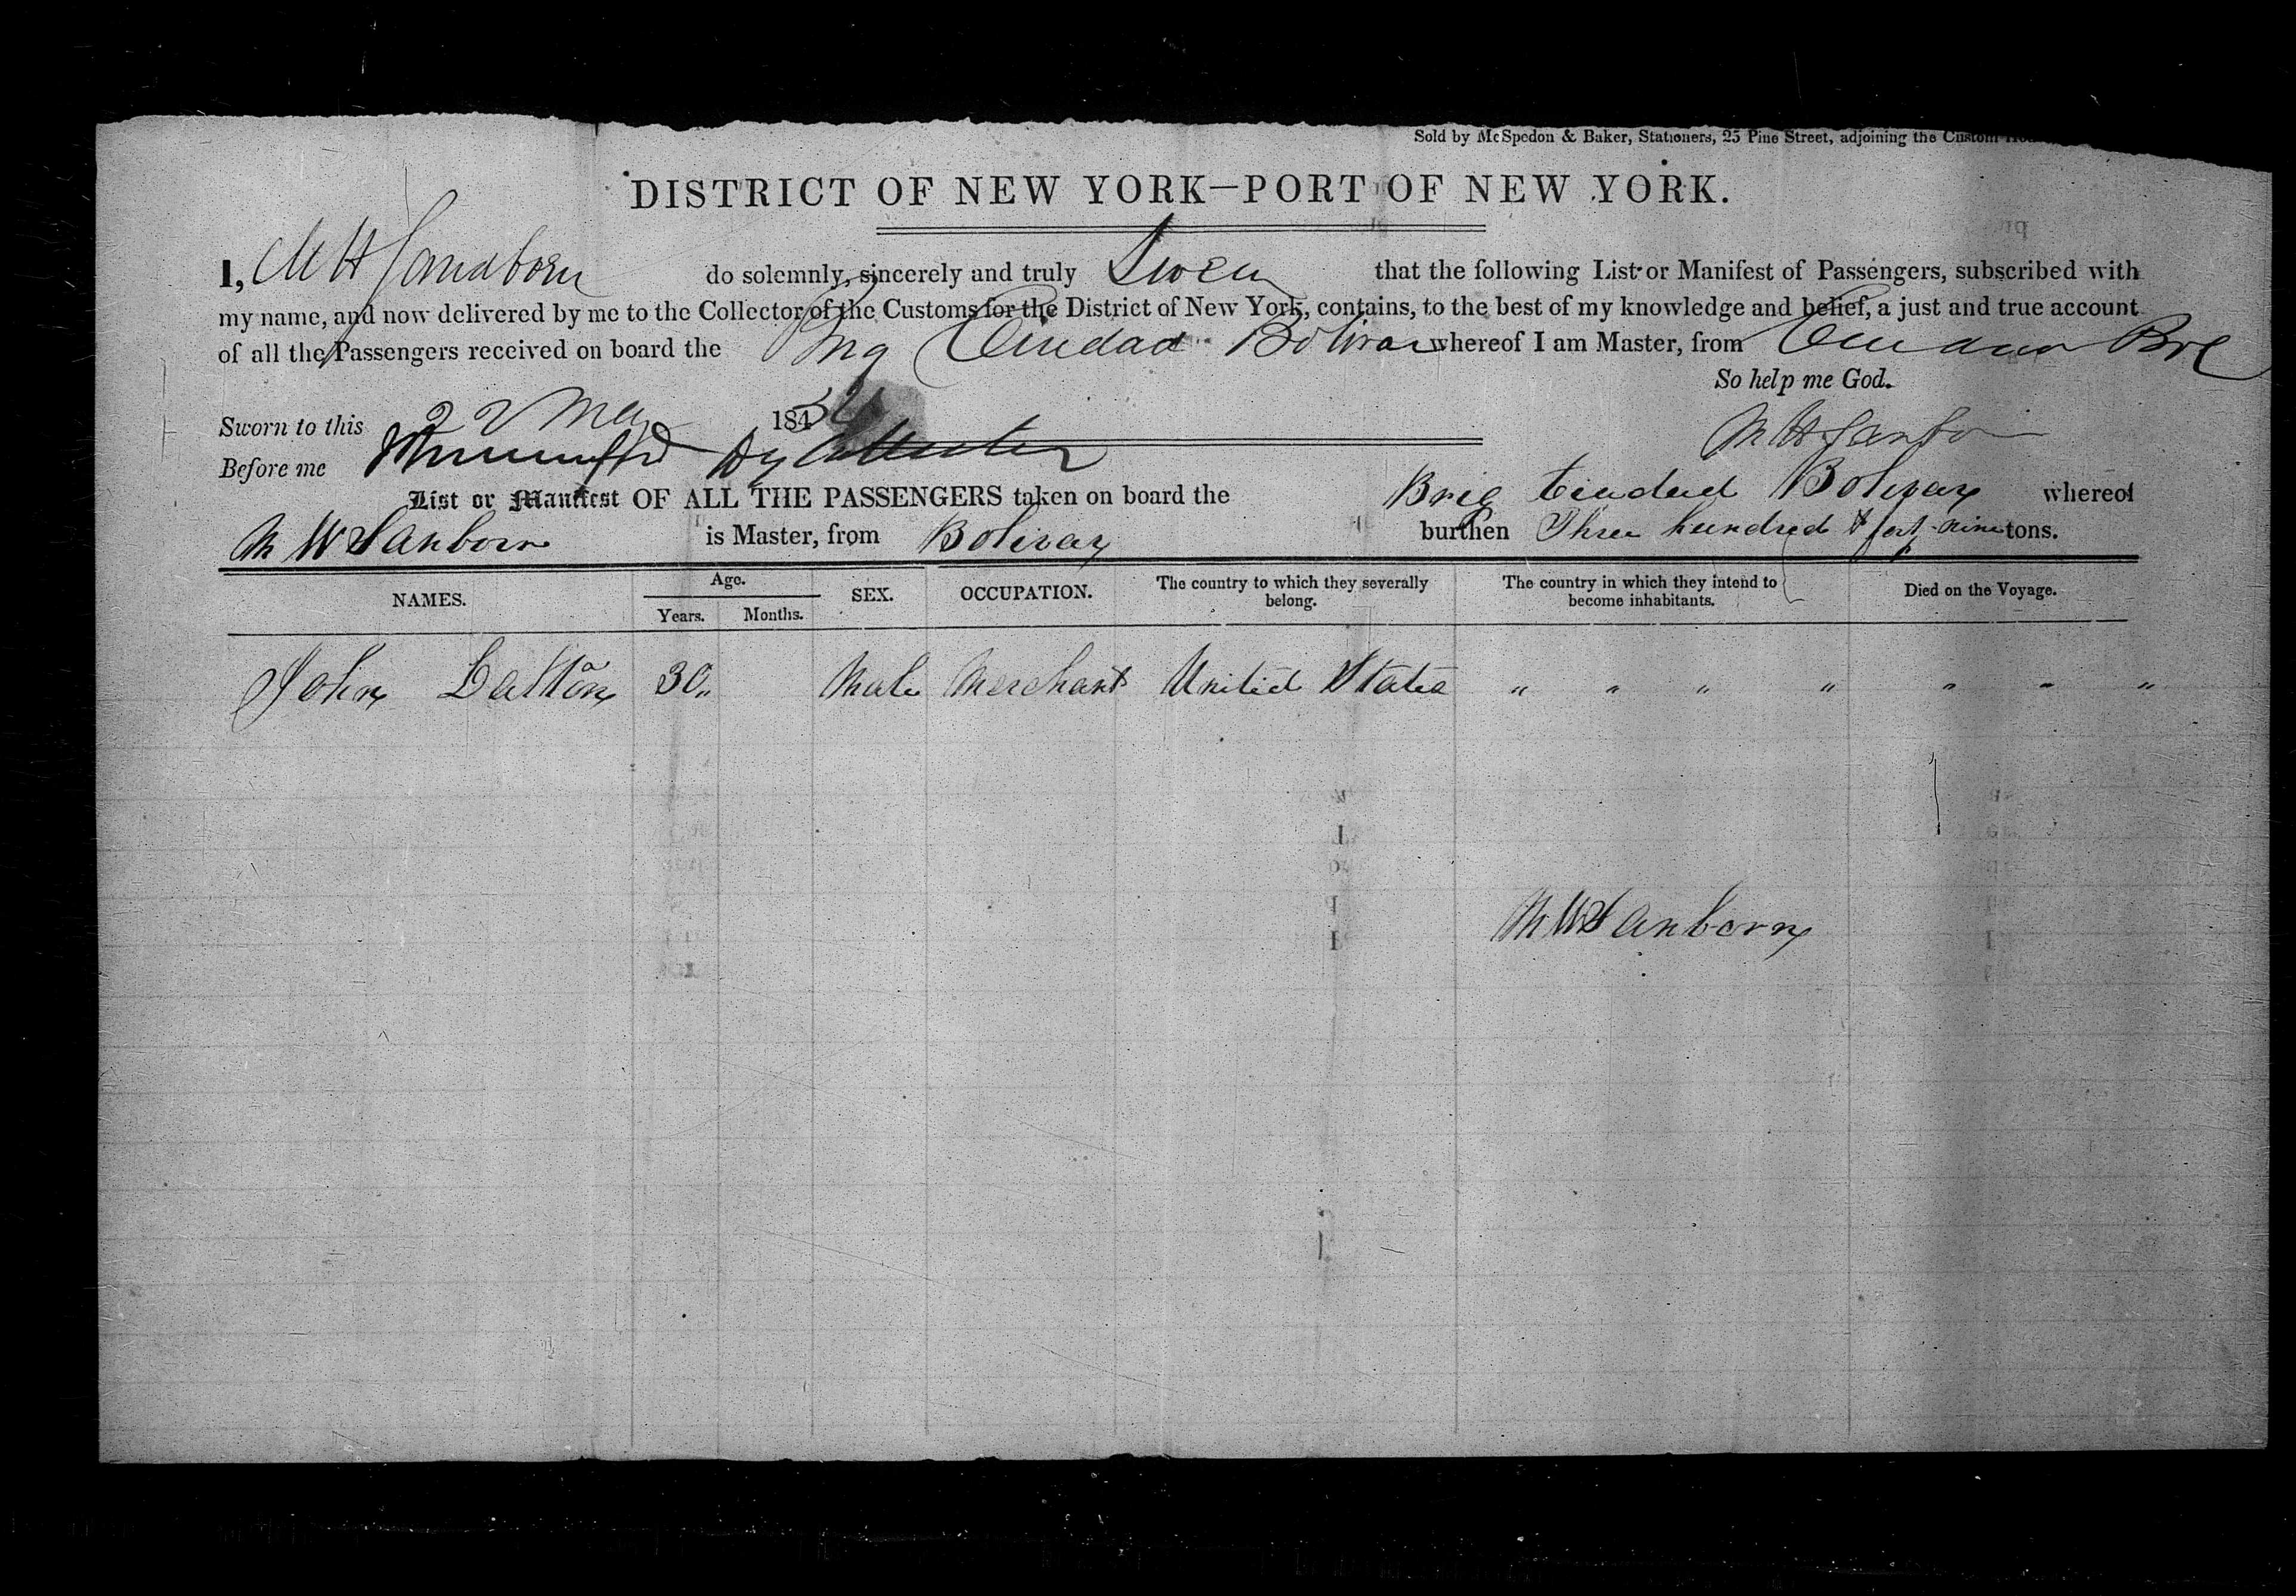 Sold by McSpedon & Baker, Stationers, 25 Pine Street, adjoining the Custom
DISTRICT OF NEW YORK—PORT OF NEW YORK.
I, M W Sandborn do solemnly, sincerely and truly Swear that the following List or Manifest of Passengers, subscribed with
my name, and now delivered by me to the Collector of the Customs for the District of New York, contains, to the best of my knowledge and belief, a just and true account
of all the Passengers received on board the Brig Ciudad Bolivar whereof I am Master, from Ciudad Bol
So help me God.
Sworn to this 22 May 185
M W Sanborn
Before me Dy Collector
List or Manifest OF ALL THE PASSENGERS taken on board the Brig Ciudad Bolivar whereof
M W Sanborn is Master, from Bolivar burthen Three hundred & forty-nine tons.
NAMES. Age. SEX. OCCUPATION. The country to which they severally belong. The country in which they intend to become inhabitants. Died on the Voyage.
Years. Months.
John Dalton 30 Male Merchant United States " " " " " " "
M W Sanborn